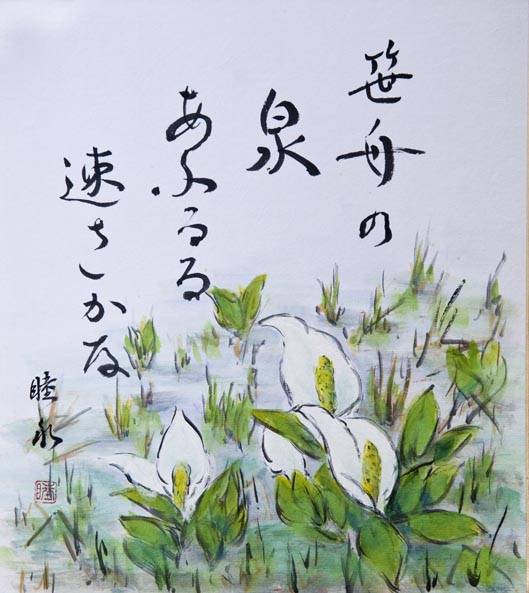 笹舟の
泉
あふるる
速さかな
睦永
睦